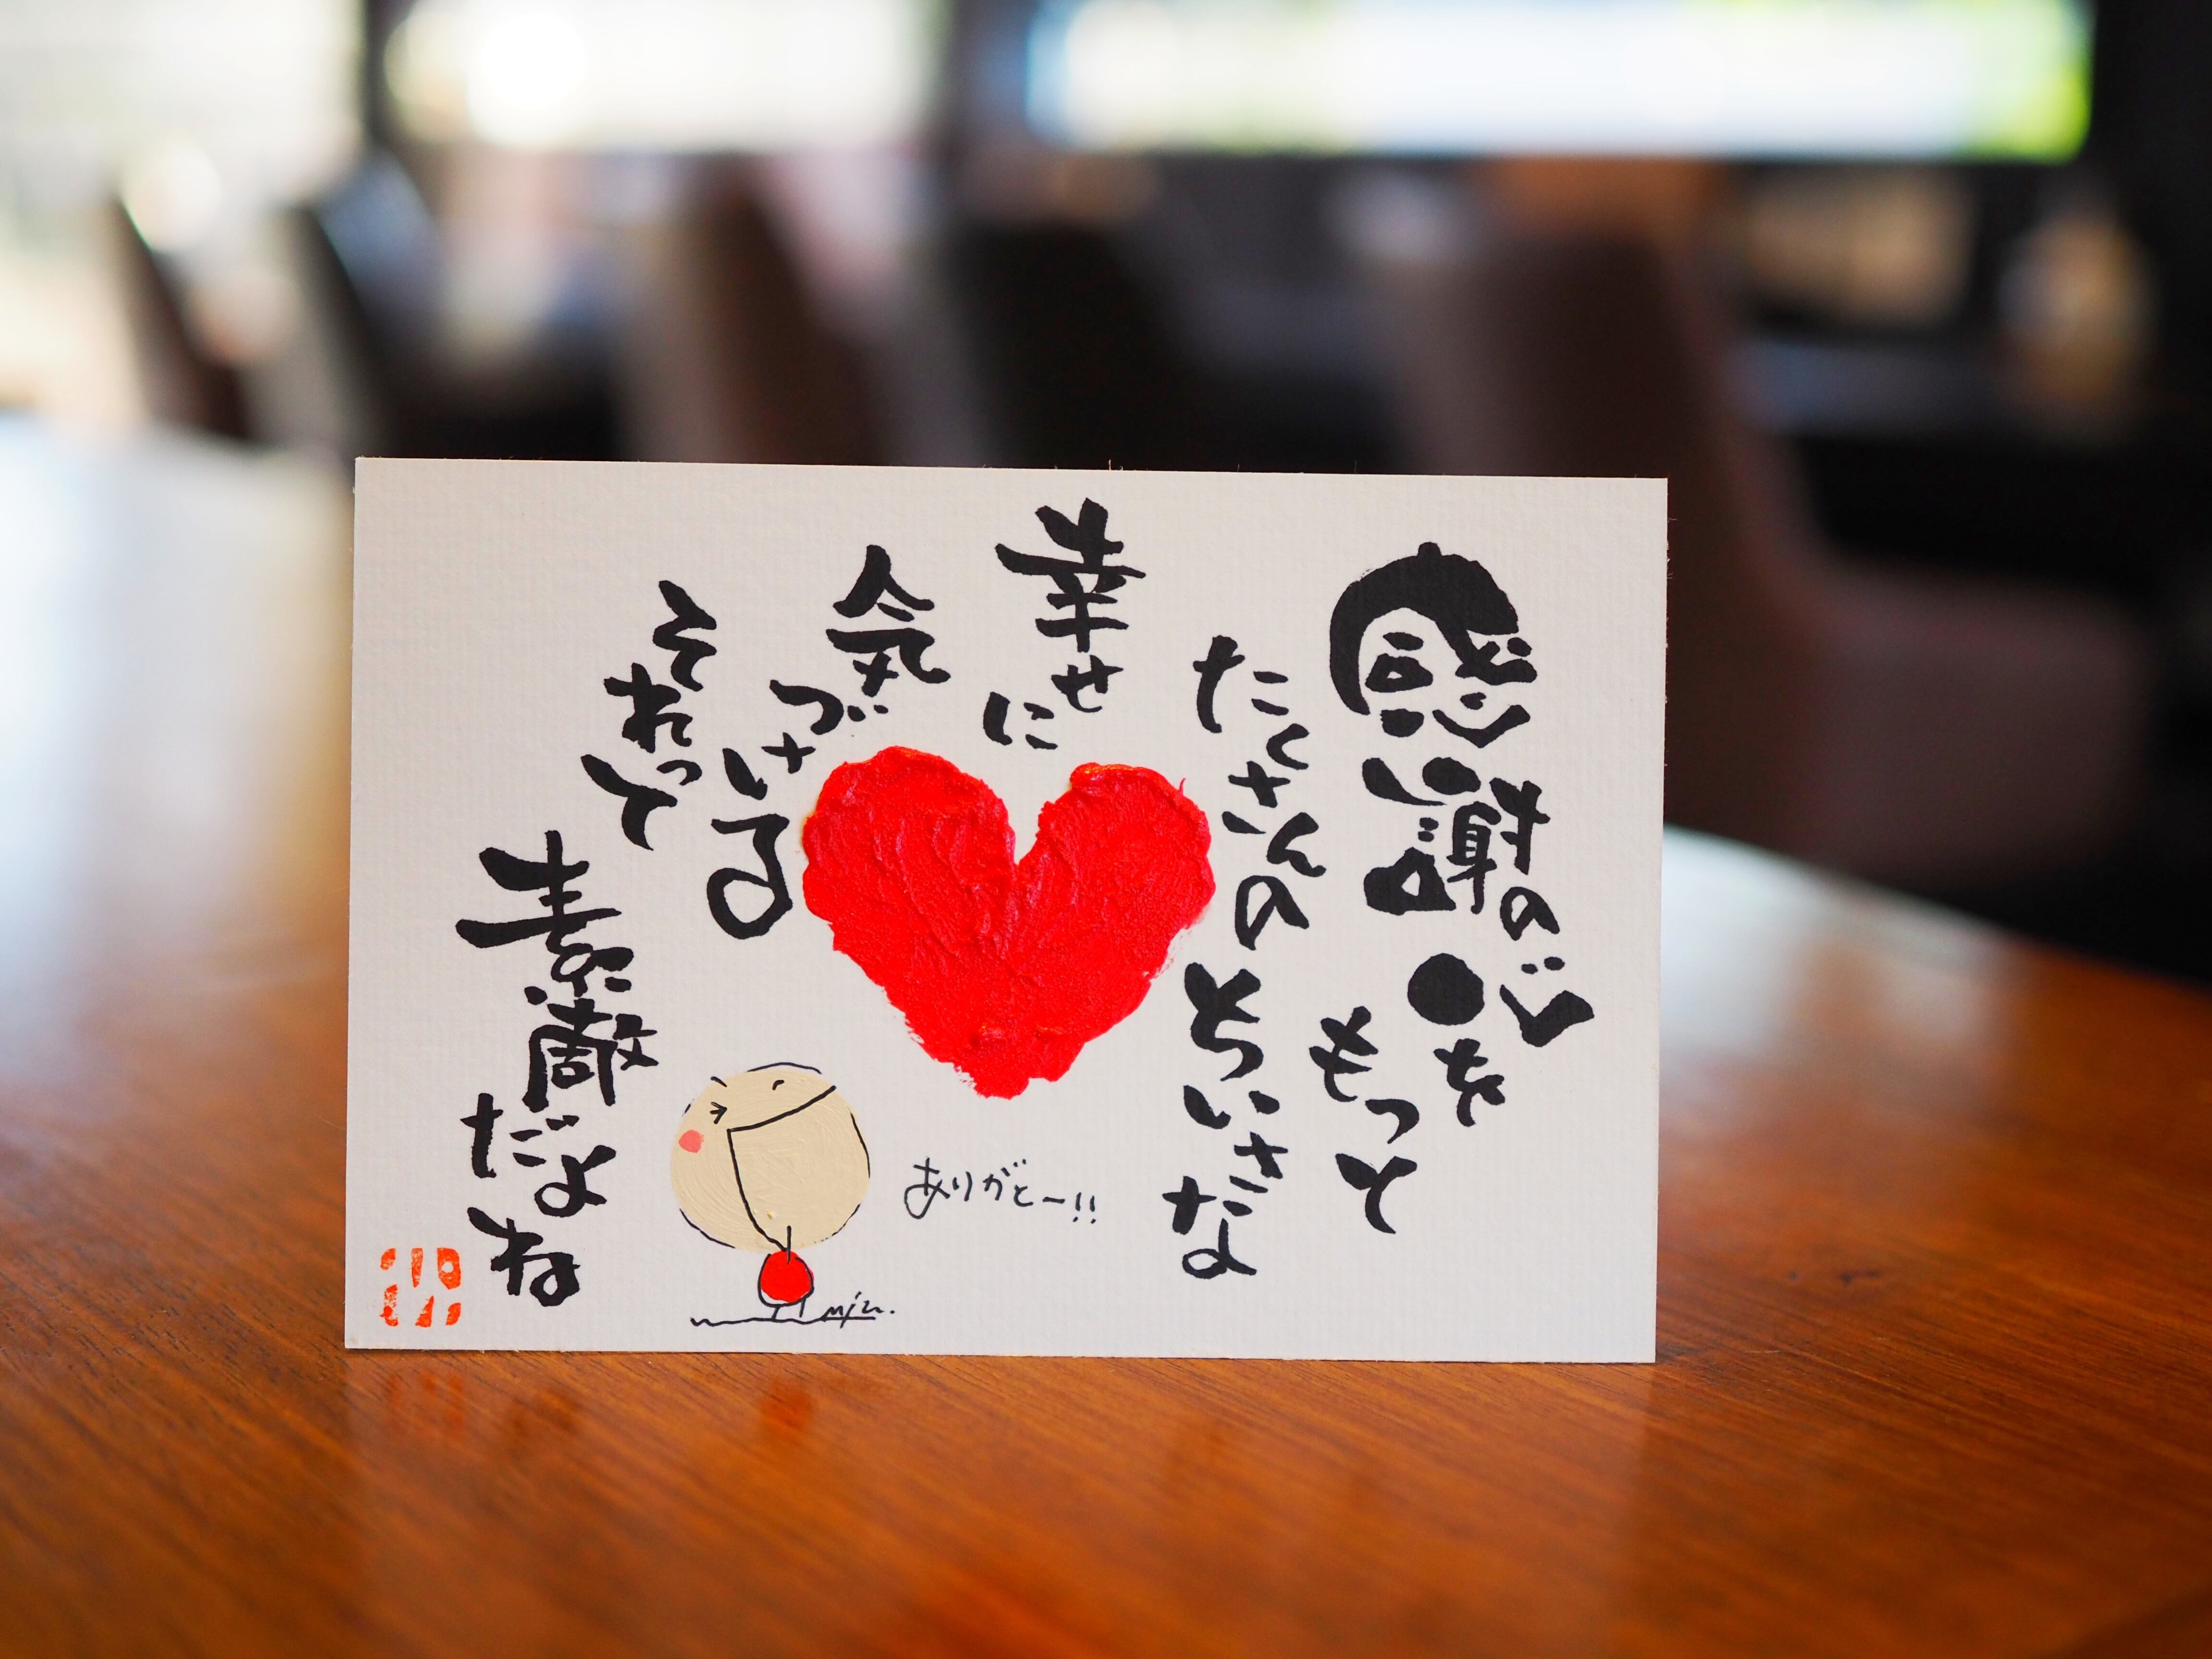 感謝の心を
もって
たくさんの
ちいさな
幸せに
気づける
それって
素敵だよね
ありがとー!!
miz.